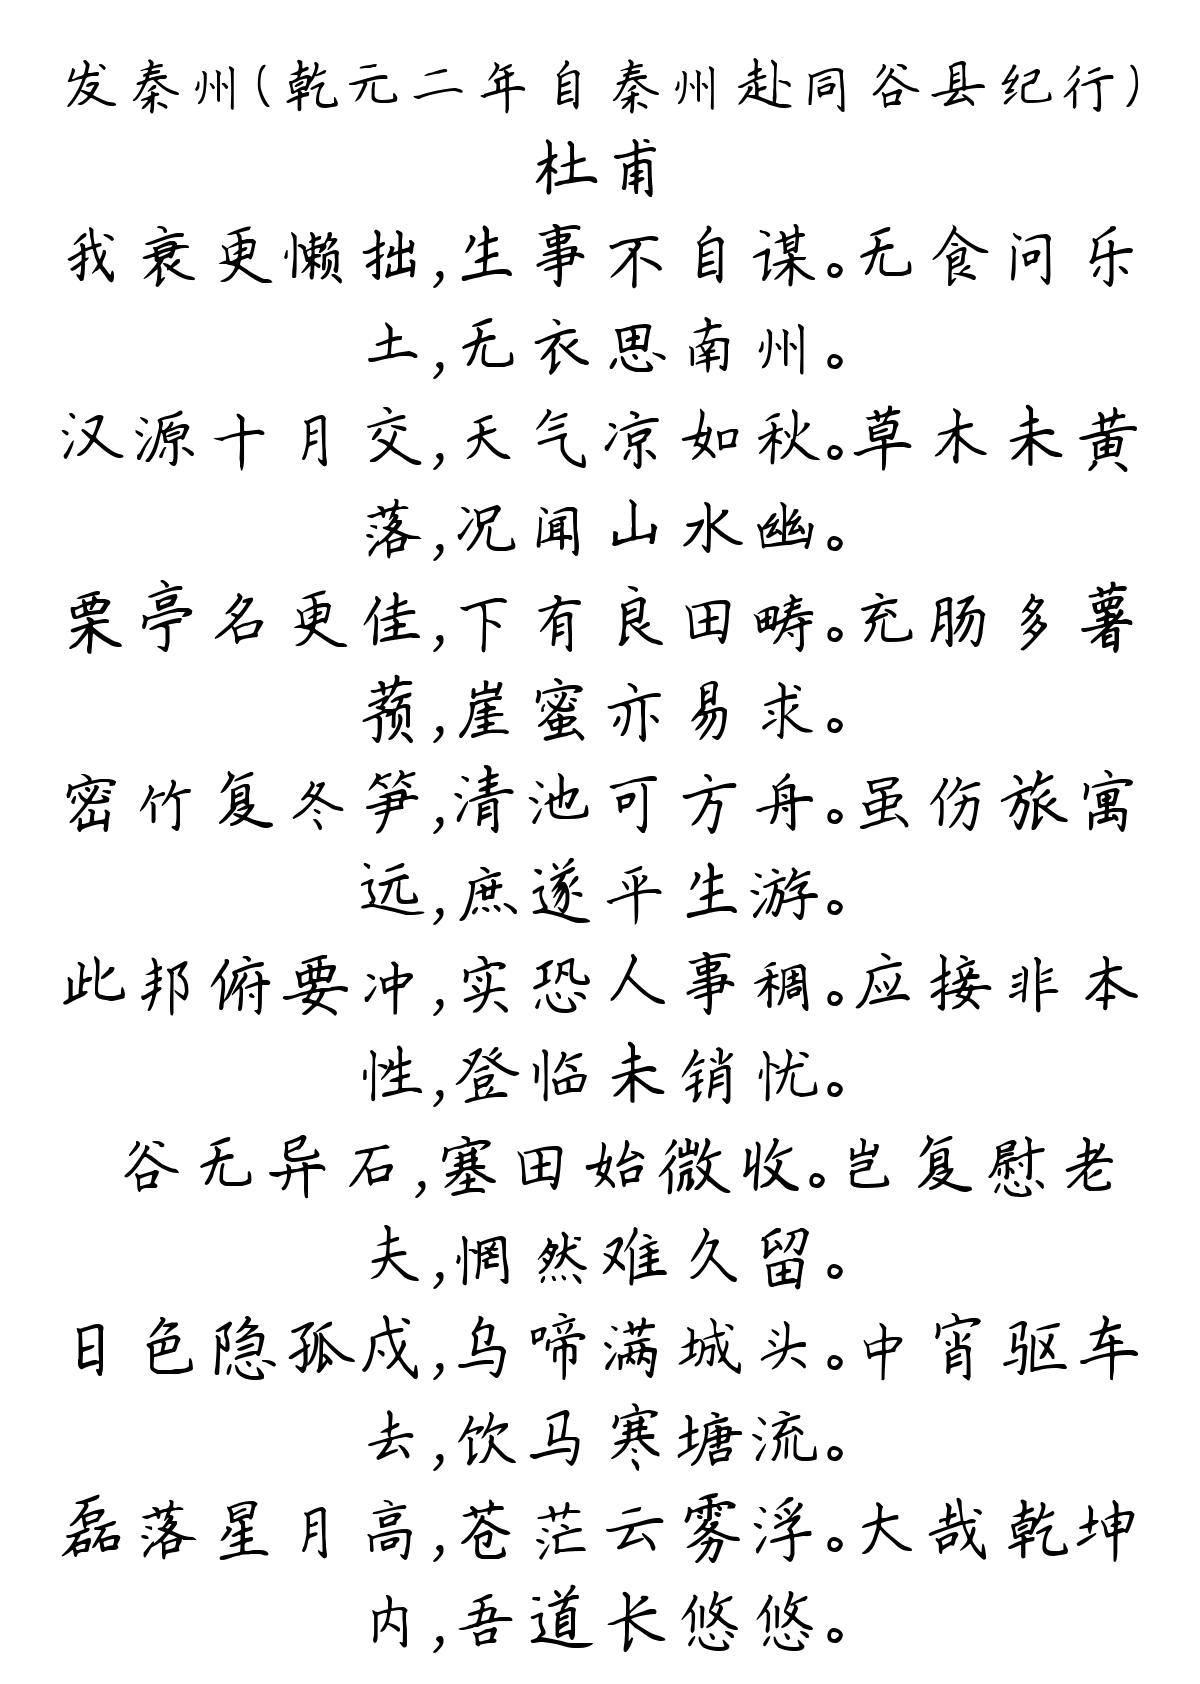 发秦州(乾元二年自秦州赴同谷县纪行)
杜甫
我衰更懒拙,生事不自谋。无食问乐
土,无衣思南州。
汉源十月交,天气凉如秋。草木未黄
落,况闻山水幽。
栗亭名更佳,下有良田畴。充肠多薯
蓣,崖蜜亦易求。
密竹复冬笋,清池可方舟。虽伤旅寓
远,庶遂平生游。
此邦俯要冲,实恐人事稠。应接非本
性,登临未销忧。
谷无异石,塞田始微收。岂复慰老
夫,惘然难久留。
日色隐孤戍,乌啼满城头。中宵驱车
去,饮马寒塘流。
磊落星月高,苍茫云雾浮。大哉乾坤
内,吾道长悠悠。